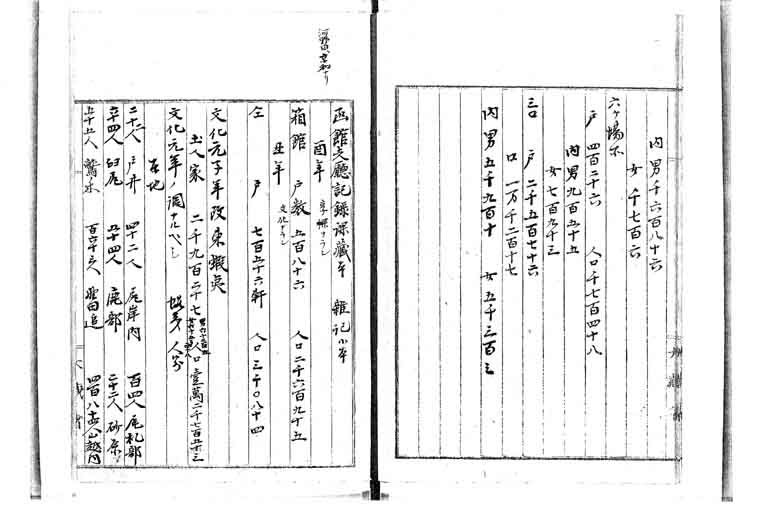 内男千六百八十六
女 千七百六
六ヶ場所
戸 四百二十六 人口千七百四十八
内男九百五十五
女七百九十三
三口 戸 二千五百七十六
口 一万千二百十七
内男五千九百十 女五千三百三
函館支廳記録課蔵本 雑記小本
酉年 享和ナラン
箱館 戸数 五百八十六 人口二千六百九十五
丑年 文化ナラン
仝 戸 七百五十六軒 人口三千〇八十四
文化元子年改東蝦夷
土人家 二千九百二十七 人口壹萬二千七百五十三
文化元年ノ調ナルベシ 蝦夷人分
在地
二十二人 戸井 四十二人 尾岸内 百四人 尾札部
六十四人 臼尻 五十四人 鹿部 二十二人 砂原
五十五人 鷲ノ木 百六十三人 野田追 山越内